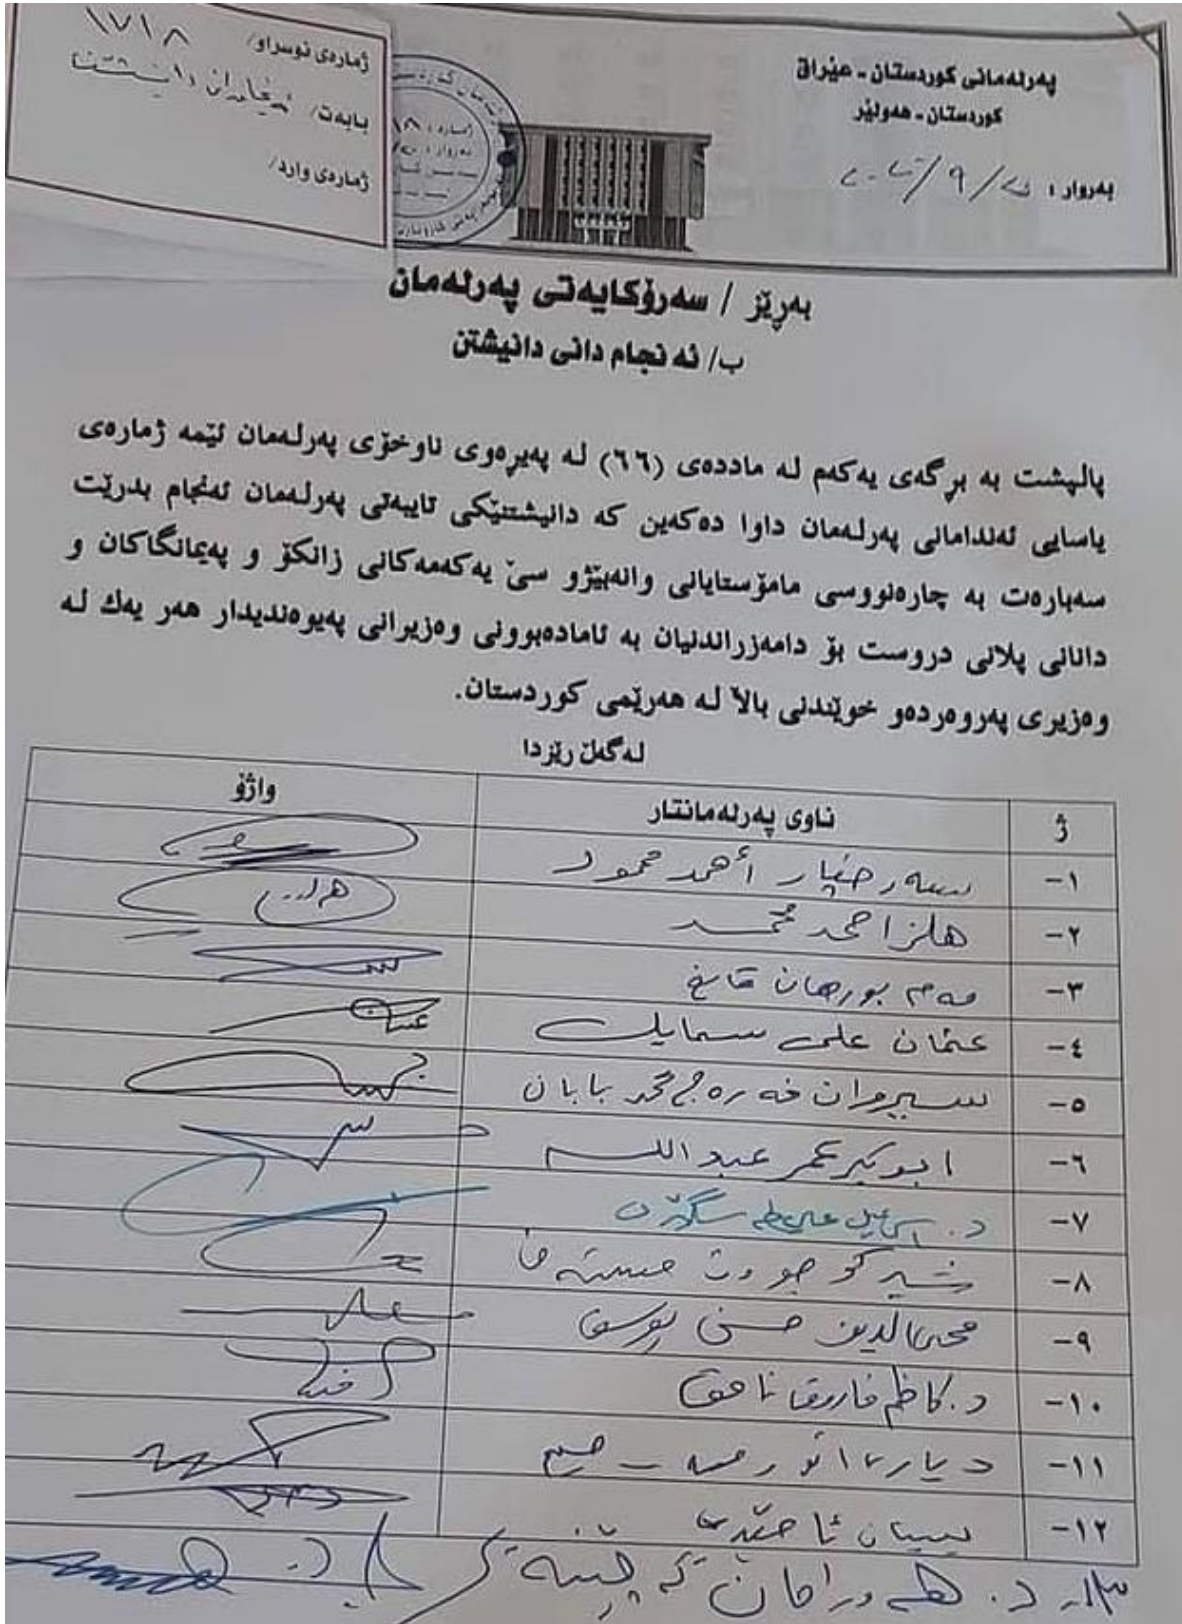 پەرلەمانی کوردستان - عێراق
کوردستان - هەولێر
بەروار :
ژمارەی نوسراو/ ١٧١٨
بابەت/ دانیشتن
ژمارەی وارد/
بەڕێز / سەرۆکایەتی پەرلەمان
ب/ ئه نجام دانی دانیشتن
پاڵپشت بە بڕگەی یەکەم لە ماددەی (٦٦) لە پەیڕەوی ناوخۆی پەرلەمان ئێمە ژمارەی
یاسایی ئەندامانی پەرلەمان داوا دەکەین کە دانیشتنێکی تایبەتی پەرلەمان ئەنجام بدرێت
سەبارەت بە چارەنووسی مامۆستایانی وانەبێژو سێ یەکەمەکانی زانکۆ و پەیمانگاکان و
دانانی پلانی دروست بۆ دامەزراندنیان بە ئامادەبوونی وەزیرانی پەیوەندیدار هەر یەك لە
وەزیری پەروەردەو خوێندنی باڵا لە هەرێمی کوردستان.
لەگەڵ رێزدا
ژ ناوی پەرلەمانتار واژۆ
١- أحمد محمود
٢- احمد محمد
٣- مەم بورهان قانع
٤- عثمان علی سمایل
٥- سیروان فەرەج محمد بابان
٦- ابوبکر عمر عبدالله
٧- د.
٨- شێرکۆ جودت مستەفا
٩- محی الدین حسن یوسف
١٠- د. کاظم فاروق نامق
١١-
١٢-
١٣- د.